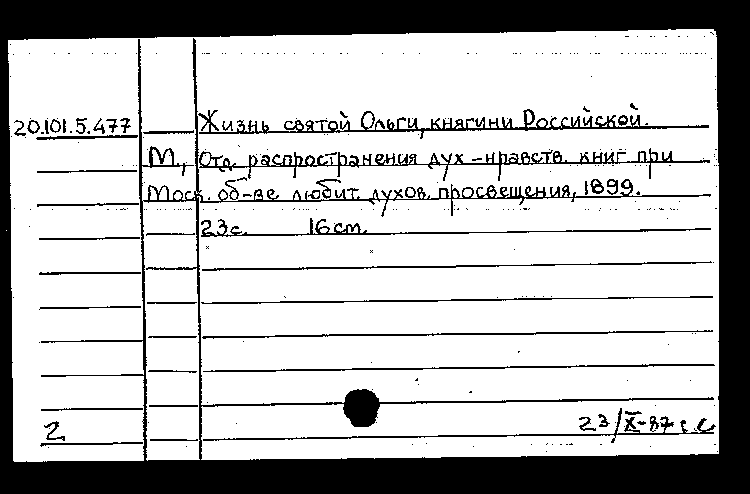 20.101.5.477 Жизнь святой Ольги, княгини Российской.
М., Отд. распространения дух-нравств. книг при
Моск. об-ве любит. духов. просвещения, 1899.
23с. 16см.
2 23/X-87 г. С